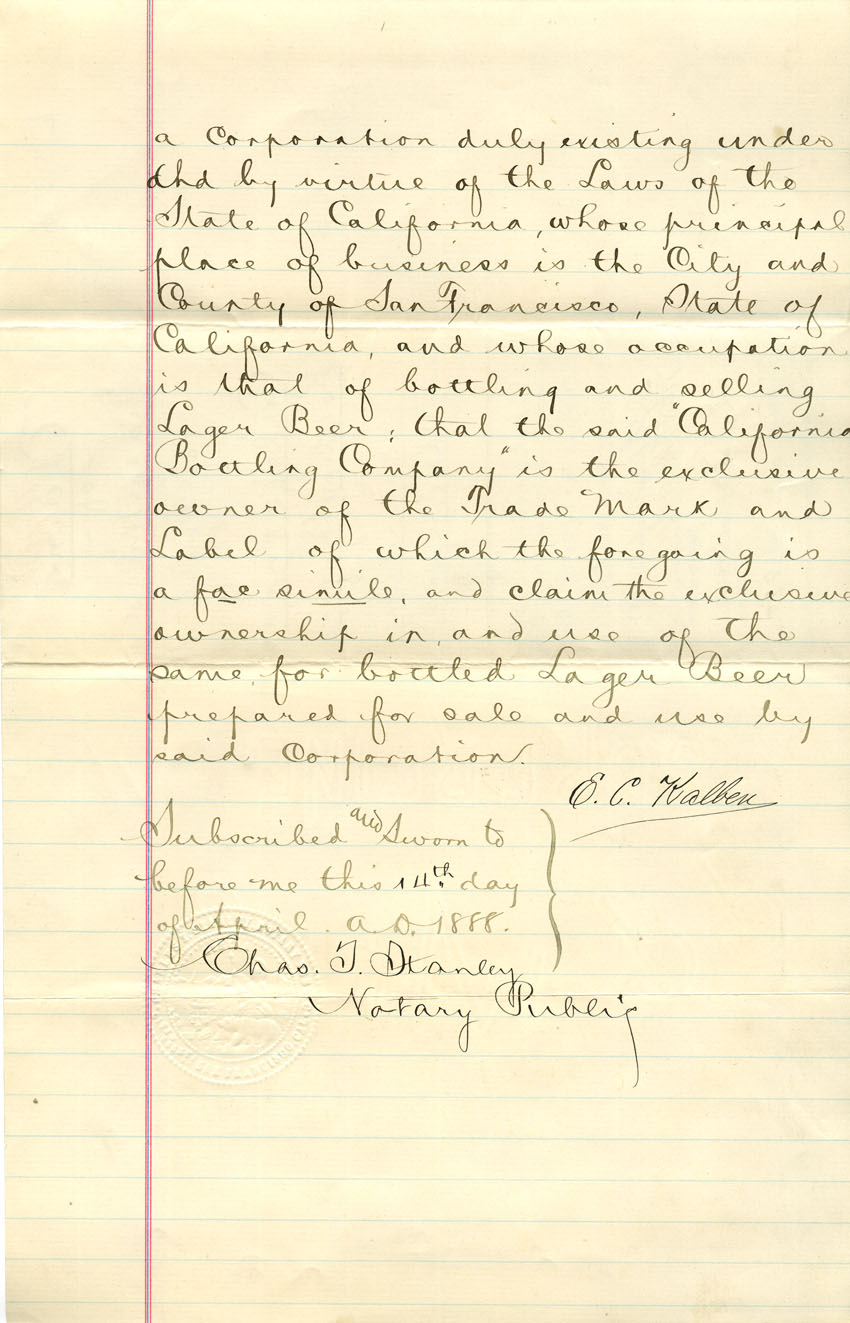 a Corporation duly existing under
and by virtue of the Laws of the
State of California, whose principal
place of business is the City and
County of San Francisco, State of
California, and whose occupation
is that of bottling and selling
Lager Beer; that the said "California
Bottling Company" is the exclusive
owner of the Trade Mark and
Label of which the foregoing is
a fac simile, and claim the exclusive
ownership in, and use of the
same, for bottled Lager Beer
prepared for sale and use by
said Corporation.
E. C. Kalben
Subscribed and Sworn to
before me this 14th day
of April. A.D. 1888.
Chas. T. Stanley
Notary Public